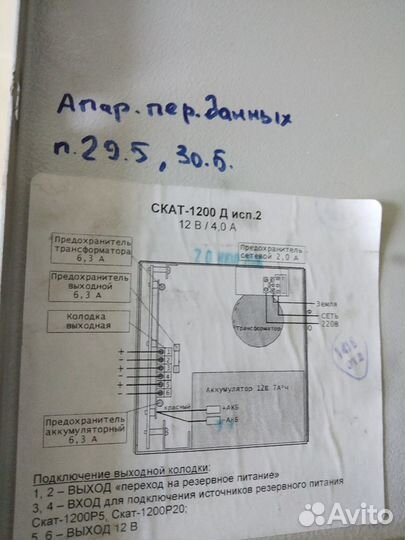 Апар. пер. данных
п. 29.5, 30.5.
СКАТ-1200 Д исп.2
12 В / 4,0 А
Предохранитель
трансформатора
6,3 А
Предохранитель
сетевой 2,0 А
Предохранитель
выходной
6,3 А
Колодка
выходная
Земля
СЕТЬ
220В
Трансформатор
1
2
3
4
5
6
Аккумулятор 12В 7Ач
красный
+АКБ
-АКБ
Предохранитель
аккумуляторный
6,3 А
Подключение выходной колодки:
1, 2 – ВЫХОД «переход на резервное питание»
3, 4 – ВХОД для подключения источников резервного питания
Скат-1200Р5, Скат-1200Р20;
5, 6 – ВЫХОД 12 В
Avito